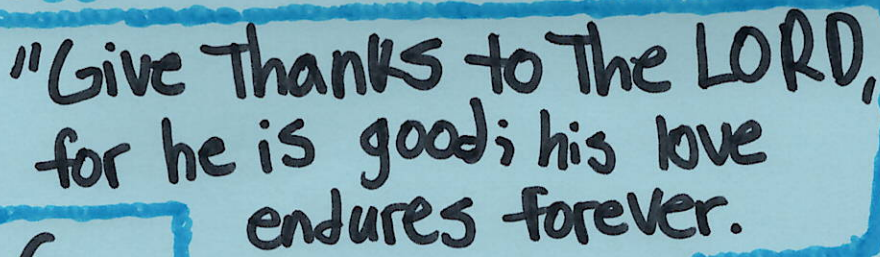 "Give Thanks to The LORD,
for he is good; his love
endures forever.